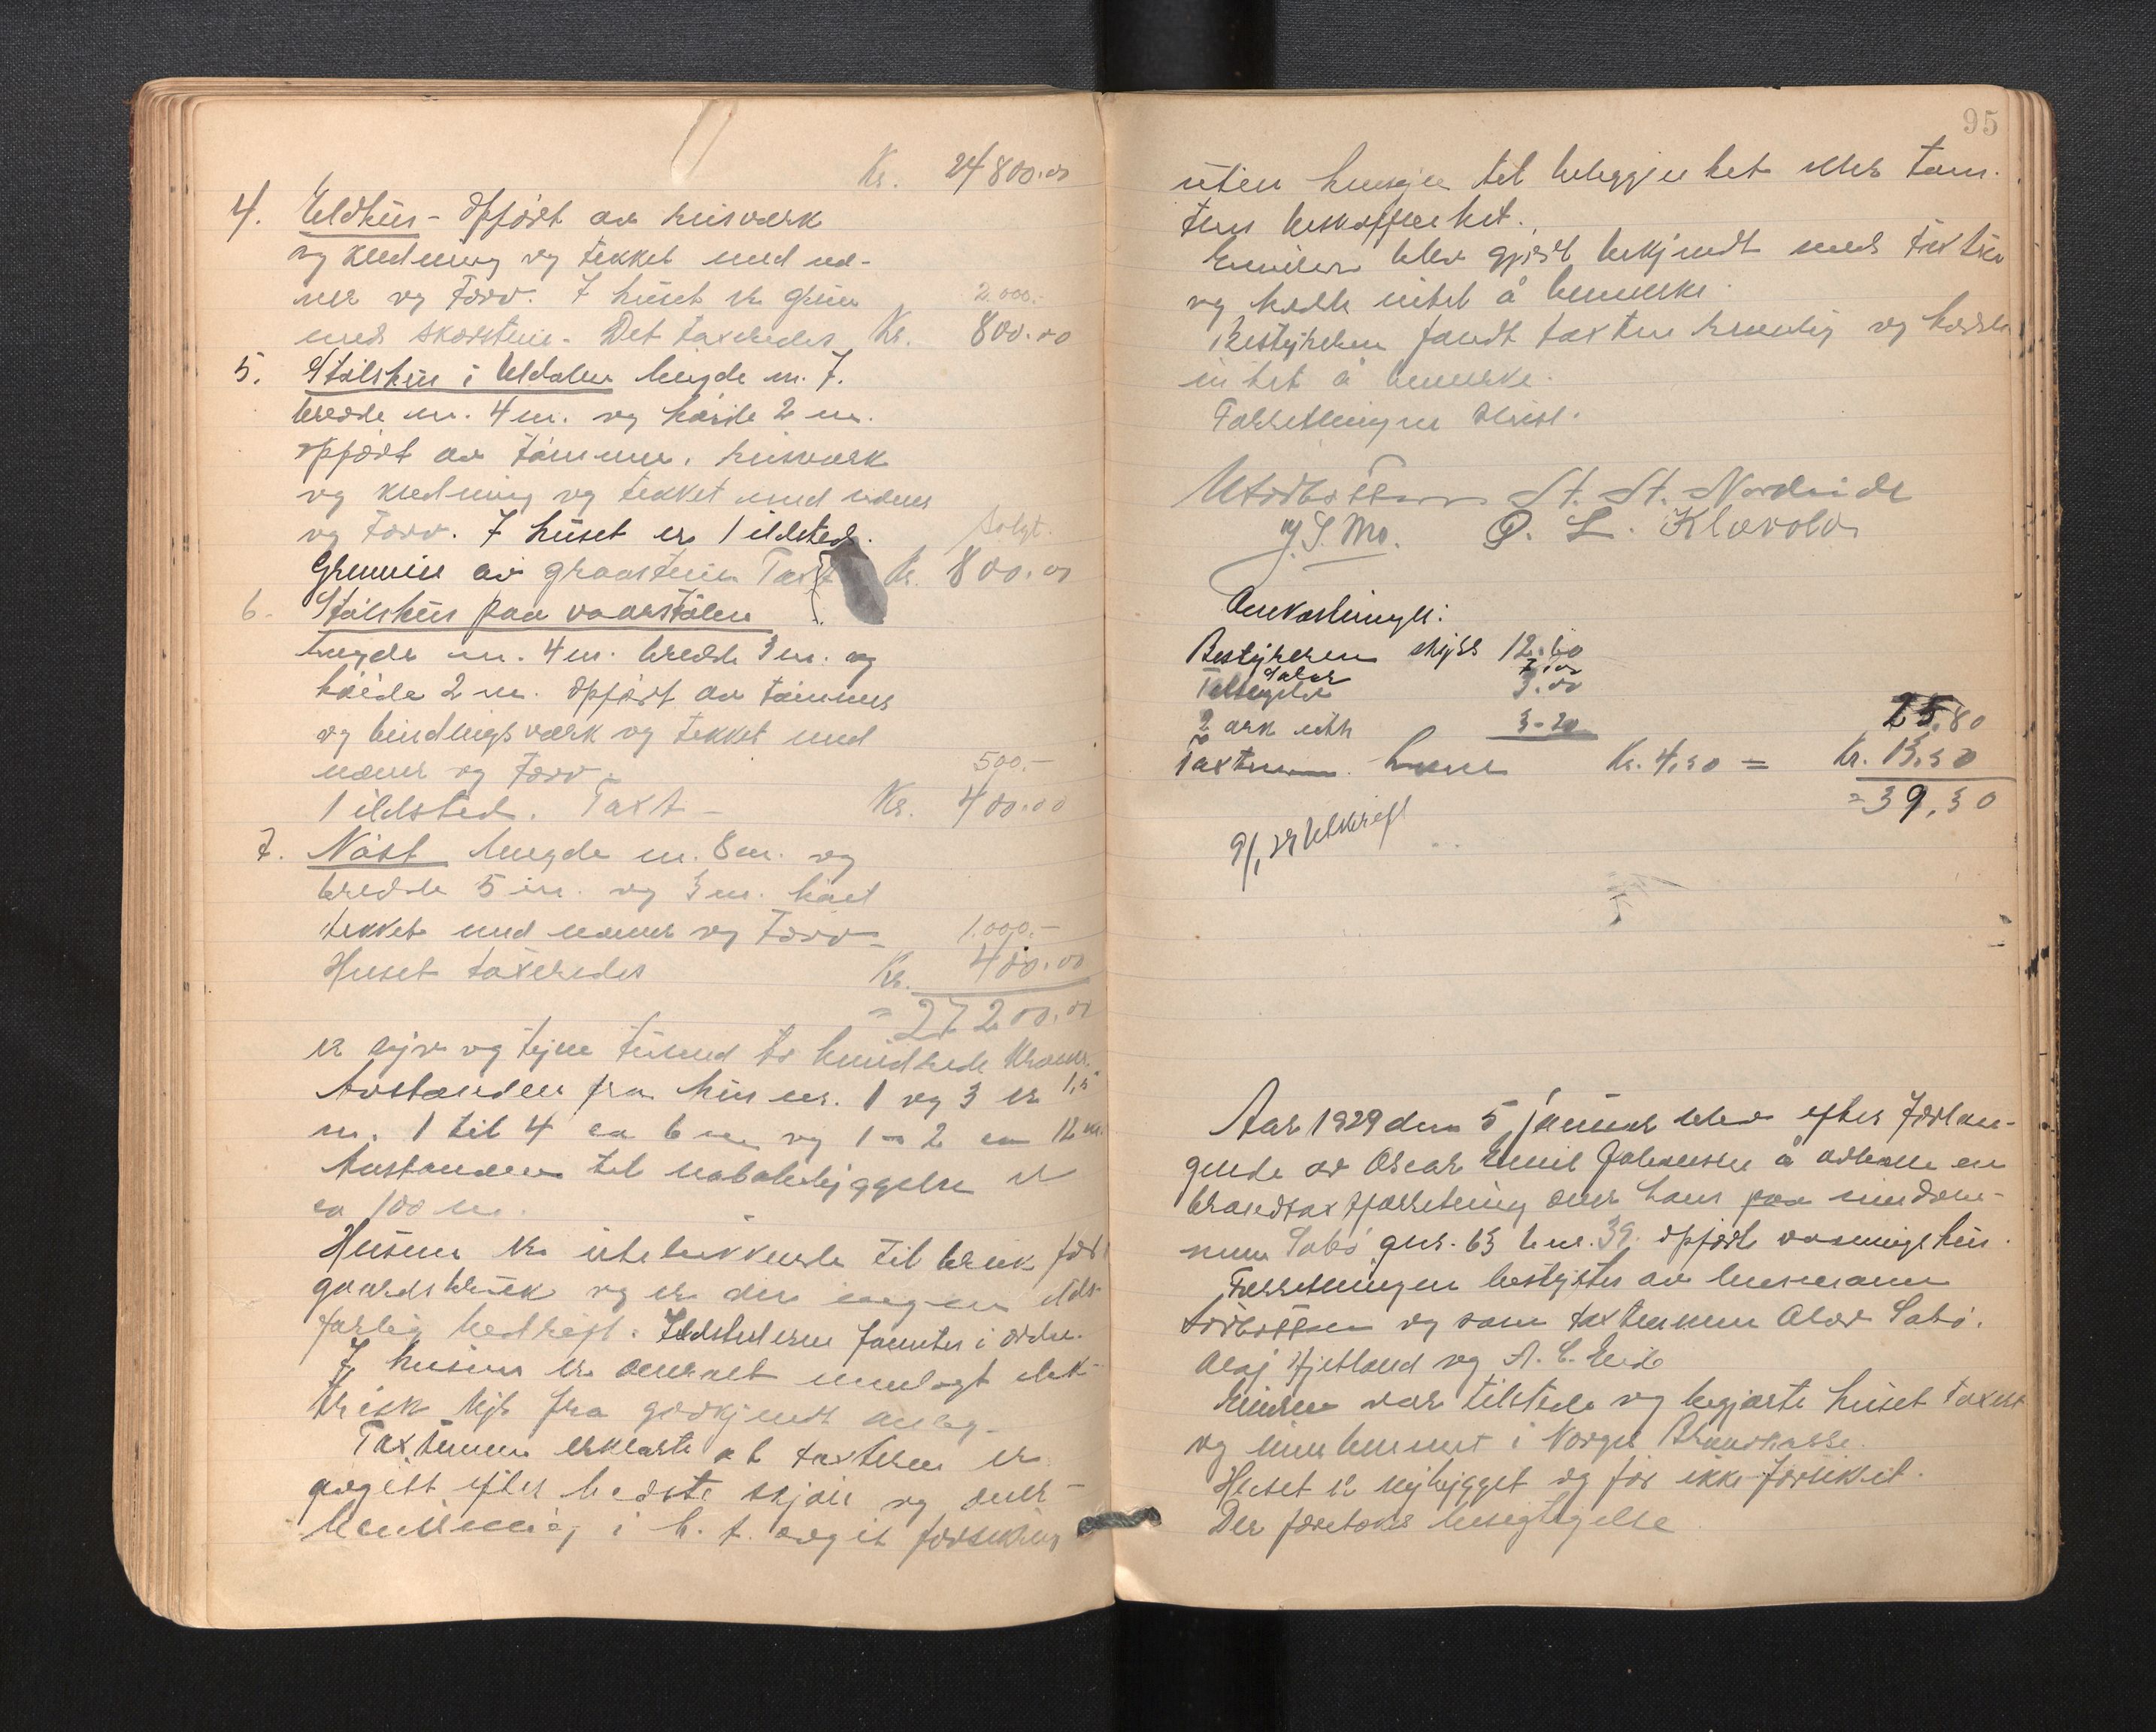 Kr. 24800.00
4. Eldhus - Opført av bisværk
og kledning og tekket med næ-
ver og Torv. I huset er grue 2.000.-
med skorsten. Det taxeredes Kr. 800.00
5. Stølshus i Utdalen lengde m. 7.
bredde m. 4 m. og høide 2 m.
opført av tømmer, bisværk
og kledning og tekket med never
og Torv. I huset er 1 ildsted. Solgt.
Grunnen av graasten Taxt Kr. 800.00
6. Stølshus paa vaarstølen
lengde m. 4 m. bredde 3 m. og
høide 2 m. Opført av tømmer
og bindingsværk og tekket med
never og Torv. 500.-
1 ildsted. Taxt - Kr. 400.00
7. Nøst lengde m. 8 m. og
bredde 5 m. og 3 m. høit
tekket med never og Torv - 1.000.-
Huset taxeredes Kr. 400.00
= 27200.00
er syv og tyve tusend to hundrede Kroner.
Avstanden fra hus nr. 1 og 3 er 1,5
m. 1 til 4 ca 6 m og 1 - 2 ca 12 m.
Avstanden til nabobebyggelse er
ca 100 m.
Husene er utelukkende til bruk for
gaardsbruk og er der ingen ilds-
farlig bedrift. Ildstederne fantes i orden.
I husene er overalt innlagt elek-
trisk lys fra godkjendt anleg.
Taxtmenn erklærte at taxterne er
avgitt efter bedste skjøn og over-
bevisning i h. t. avgit forsikring
95
uten hensyn til beleggenhet eller tom-
tens beskaffenhet.
Eieren blev gjort bekjendt med taxten
og hadde intet å bemerke.
Bestyreren fandt taxten rimelig og hadde
intet å bemerke.
Forretningen sluttet.
St. St. Nordeide
J. S. Mo. P. L. Klævold
Omkostninger:
Bestyreren skyss 12.60
Salær 7.00
3.00
2 ark utskr 3-20 25,80
Taxtmenn Kr. 4,50 = Kr. 13,50
= 39,30
9/1 29 Utskrift
Aar 1929 den 5 januar blev efter Forlan-
gende av Oscar Emil Johansen å avholde en
brandtaxtforretning over hans paa eiendom-
men Sæbø gnr. 63 bnr. 39. opførte vaaningshus.
Forretningen bestyrtes av lensmann
og som taxtmenn Olav Sæbø.
Olaj Hjetland og A. C. Eide
Eieren var tilstede og begjærte huset taxert
og innlemmet i Norges Brandkasse.
Huset er nybygget og før ikke forsikret.
Der foretoks besigtigelse